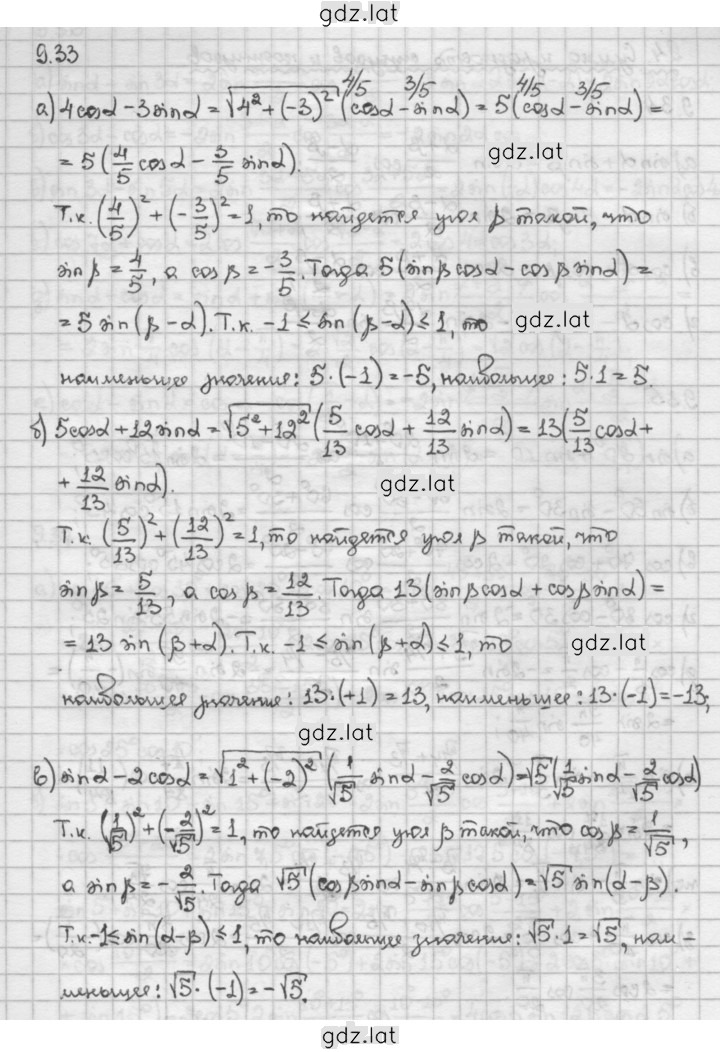 gdz.lat
9.33
4/5 3/5 4/5 3/5
а) 4cosα − 3sinα = √(4² + (−3)²) (cosα − sinα) = 5(cosα − sinα) =
gdz.lat
= 5(4/5 cosα − 3/5 sinα).
Т.к. (4/5)² + (−3/5)² = 1, то найдется угол β такой, что
sinβ = 4/5, а cosβ = −3/5. Тогда 5(sinβcosα − cosβsinα) =
= 5 sin(β − α). Т.к. −1 ≤ sin(β − α) ≤ 1, то
gdz.lat
наименьшее значение: 5·(−1) = −5, наибольшее: 5·1 = 5.
б) 5cosα + 12sinα = √(5² + 12²) (5/13 cosα + 12/13 sinα) = 13(5/13 cosα +
+ 12/13 sinα).
gdz.lat
Т.к. (5/13)² + (12/13)² = 1, то найдется угол β такой, что
sinβ = 5/13, а cosβ = 12/13. Тогда 13(sinβcosα + cosβsinα) =
= 13 sin(β + α). Т.к. −1 ≤ sin(β + α) ≤ 1, то
gdz.lat
наибольшее значение: 13·(+1) = 13, наименьшее: 13·(−1) = −13;
gdz.lat
в) sinα − 2cosα = √(1² + (−2)²) (1/√5 sinα − 2/√5 cosα) = √5(1/√5 sinα − 2/√5 cosα)
Т.к. (1/√5)² + (−2/√5)² = 1, то найдется угол β такой, что cosβ = 1/√5,
а sinβ = −2/√5. Тогда √5(cosβsinα − sinβcosα) = √5 sin(α − β).
Т.к. −1 ≤ sin(α − β) ≤ 1, то наибольшее значение: √5·1 = √5, наи-
меньшее: √5·(−1) = −√5.
gdz.lat